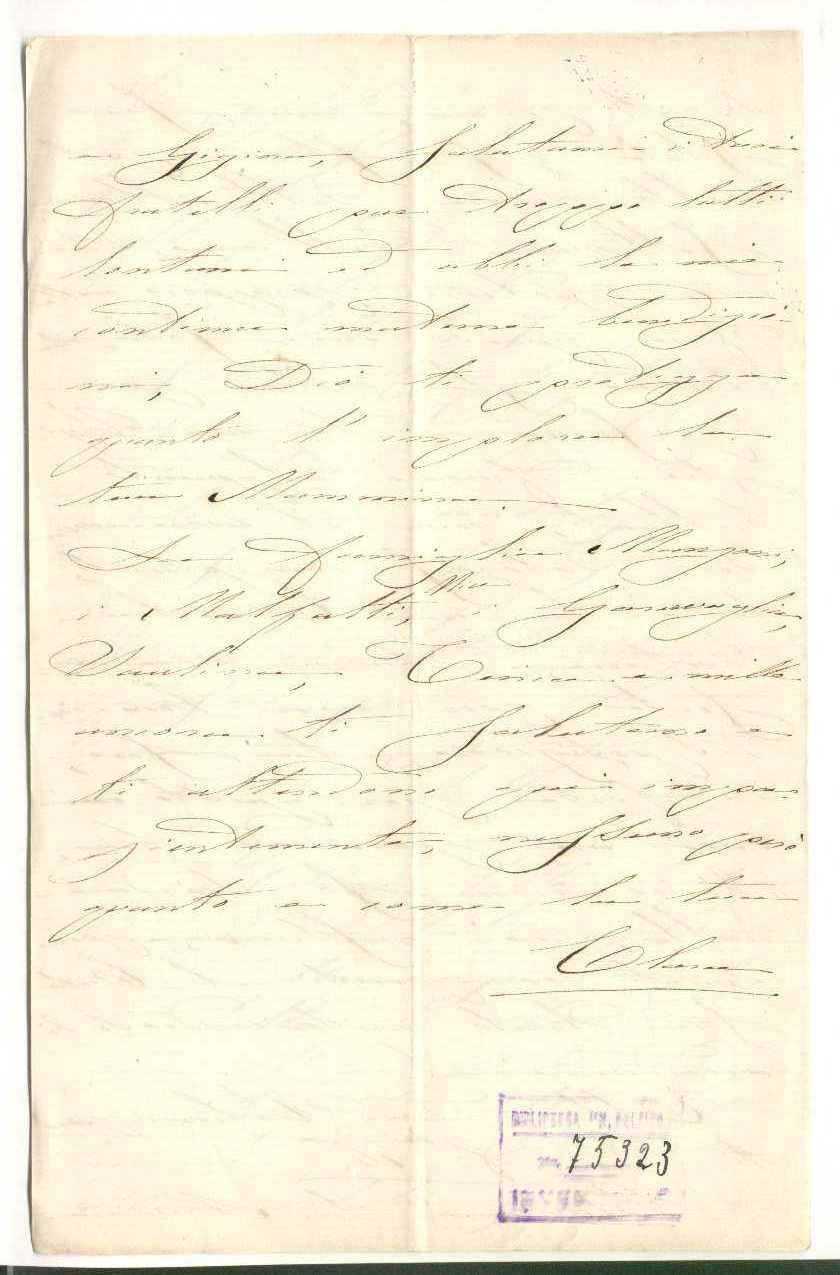 e Gigino, Salutami i tuoi
fratelli pur troppo tutti
lontani ed abbi le mie
continue materne benedizio-
ni, Dio ti protegga
quanto l'implora la
tua Mammina.
La famiglia Manzoni,
i Malfatti, i Garavaglia,
Paolina, e mille
ancora ti Salutano e
ti attendono qui impa-
zientemente, nessuno però
quanto e come la tua
Clara
75323